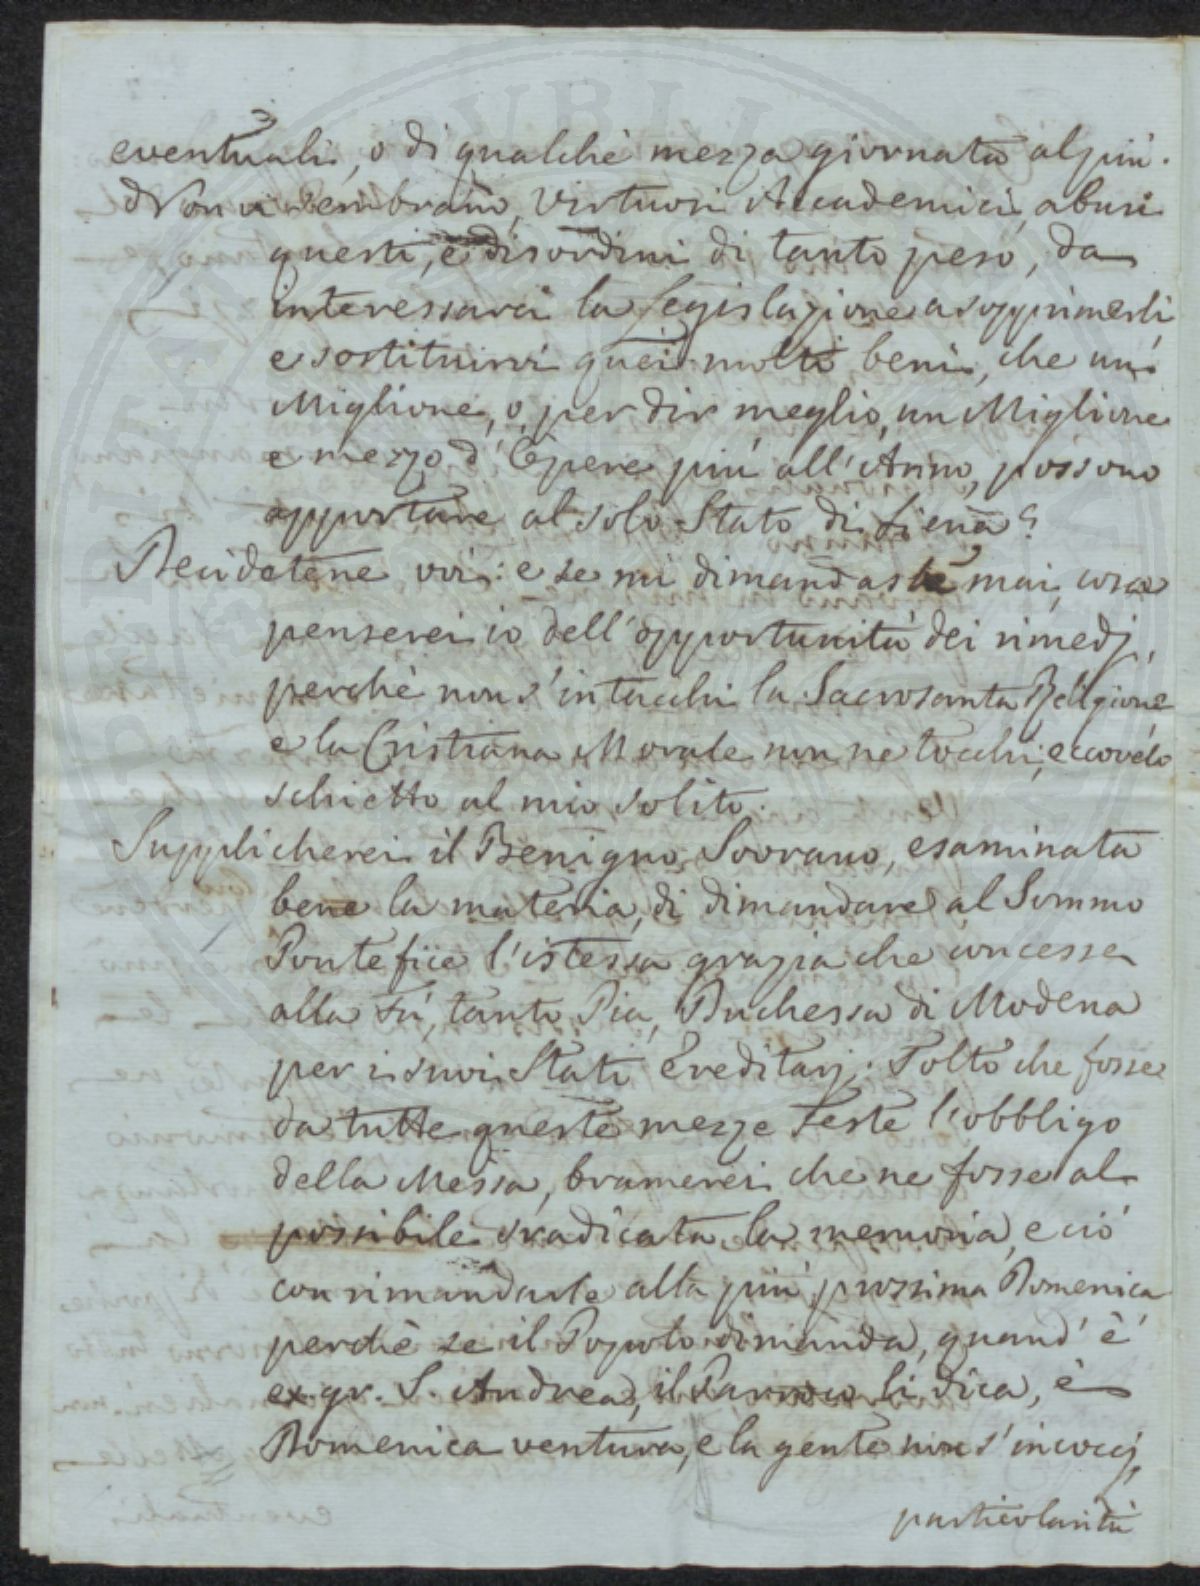 eventuali, o di qualche mezza giornata al più.
Non vi sembrano, Virtuosi Accademici, abusi
questi, e disordini di tanto peso, da
interessarci la Legislazione a sopprimerli
e sostituirvi quei molti beni, che un
Miglione, o, per dir meglio, un Miglione
e mezzo d'Opere più all'Anno, possono
apportare al solo Stato di Siena?
Decidetene voi: e se mi dimandaste mai, cosa
penserei io dell'opportunità dei rimedj,
perchè non s'intacchi la Sacrosanta Religione
e la Cristiana Morale non ne tocchi; eccovelo
schietto al mio solito.
Supplicherei il Benigno Sovrano, esaminata
bene la materia, di dimandare al Sommo
Pontefice l'istessa grazia che concesse
alla fù, tanto Pia, Duchessa di Modena
per i suoi Stati Ereditarj. Tolto che fosse
da tutte queste mezze Feste l'obbligo
della Messa, bramerei che ne fosse al
possibile sradicata la memoria, e ciò
con rimandarle alla più prossima Domenica
perchè se il Popolo dimanda, quand'è
ex. gr. S. Andrea, il Parroco li dica, è
Domenica ventura, e la gente non s'incocci,
particolarità